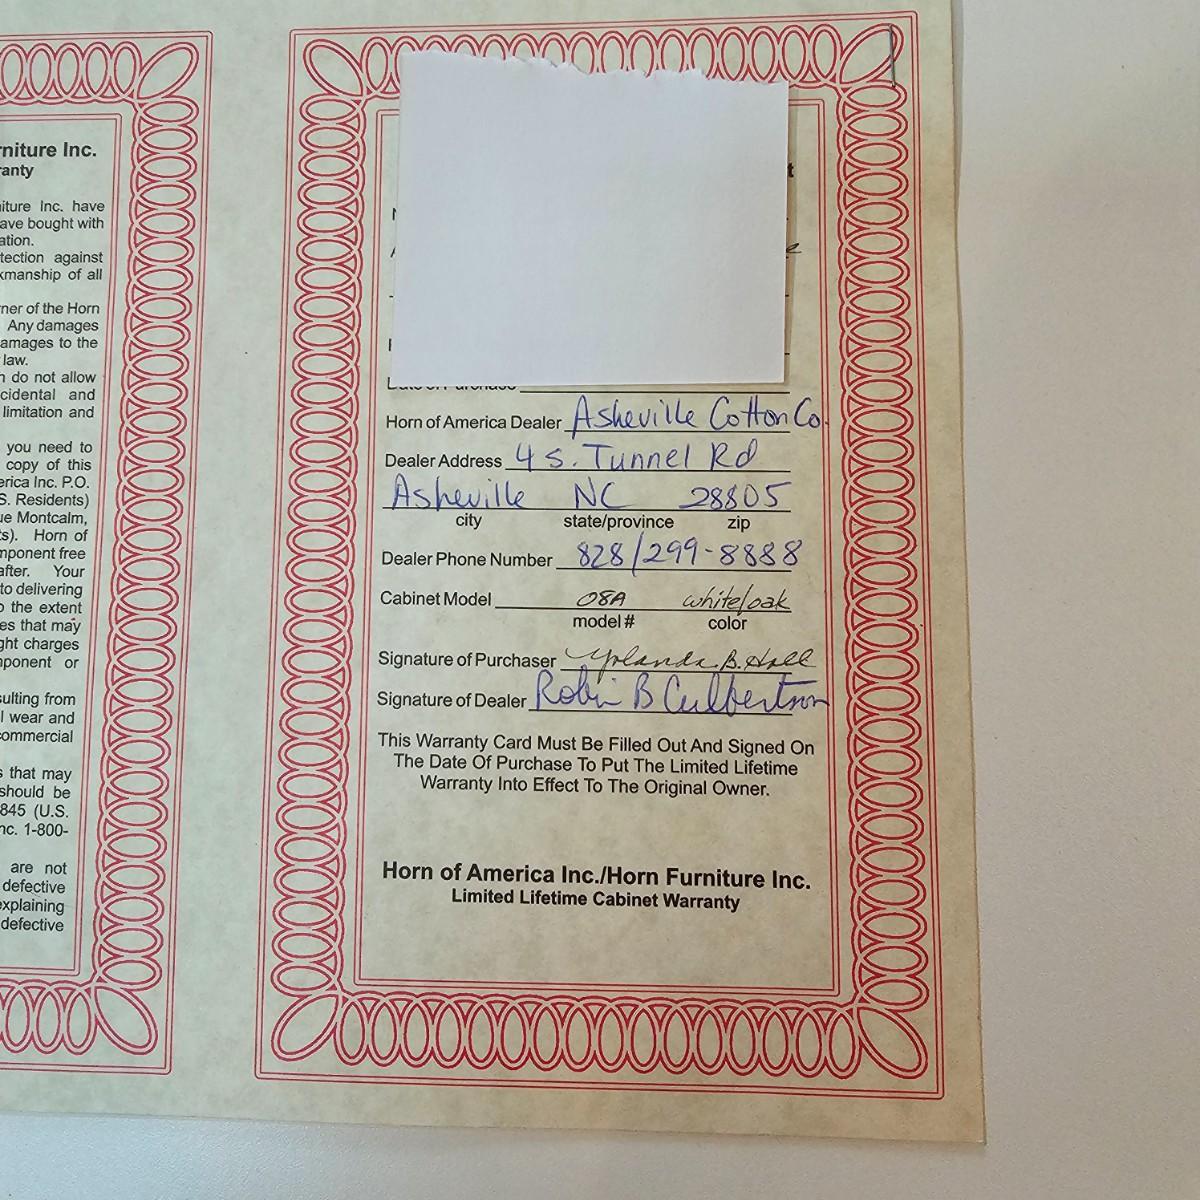 rniture Inc.
ranty
iture Inc. have
ave bought with
ation.
tection against
kmanship of all
ner of the Horn
Any damages
amages to the
law.
n do not allow
cidental and
limitation and
you need to
copy of this
erica Inc. P.O.
S. Residents)
ue Montcalm,
ts). Horn of
mponent free
after. Your
to delivering
o the extent
es that may
ght charges
mponent or
sulting from
l wear and
commercial
s that may
should be
845 (U.S.
nc. 1-800-
are not
defective
explaining
defective
t
Date of Purchase
Horn of America Dealer Asheville Cotton Co.
Dealer Address 4 S. Tunnel Rd
Asheville NC 28805
city state/province zip
Dealer Phone Number 828/299-8888
Cabinet Model 08A white/oak
model # color
Signature of Purchaser Yolanda B. Hall
Signature of Dealer Robin B Culbertson
This Warranty Card Must Be Filled Out And Signed On
The Date Of Purchase To Put The Limited Lifetime
Warranty Into Effect To The Original Owner.
Horn of America Inc./Horn Furniture Inc.
Limited Lifetime Cabinet Warranty